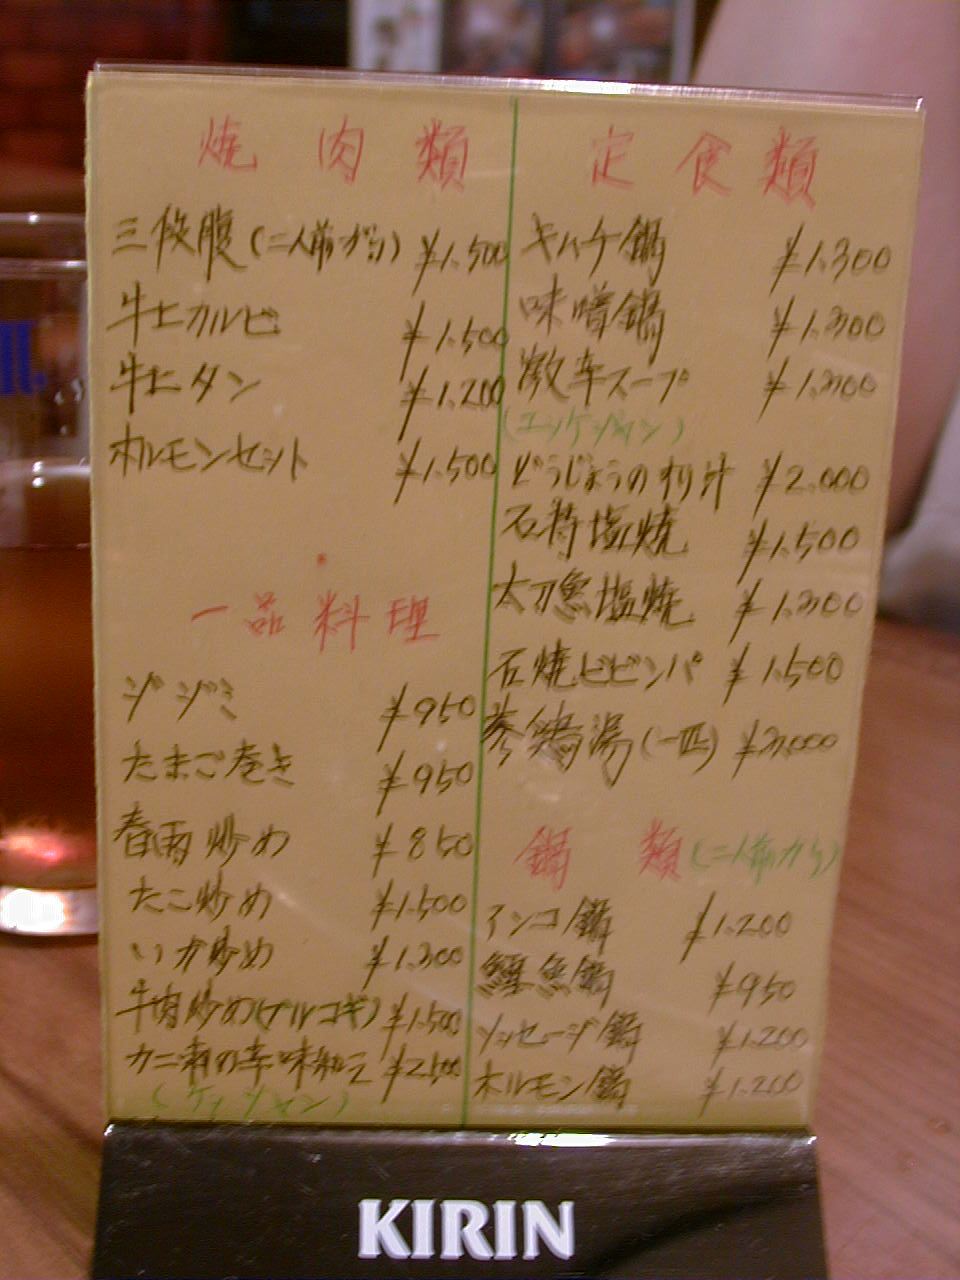 焼肉類
三段腹(二人前から) ¥1.500
牛上カルビ ¥1.500
牛上タン ¥1.200
ホルモンセット ¥1.500
一品料理
ジヂミ ¥950
たまご巻き ¥950
春雨炒め ¥850
たこ炒め ¥1.500
いか炒め ¥1.300
牛肉炒め(プルコギ) ¥1.500
カニ 辛味和え ¥2.500
(ケジャン)
定食類
キムチ鍋 ¥1.300
味噌鍋 ¥1.300
激辛スープ ¥1.300
(ユッケジャン)
どうじょうのすり汁 ¥2.000
石持塩焼 ¥1.500
太刀魚塩焼 ¥1.300
石焼ビビンバ ¥1.500
参鶏湯(一匹) ¥3.000
鍋類(二人前から)
インコ鍋 ¥1.200
魚鍋 ¥950
ソッセージ鍋 ¥1.200
ホルモン鍋 ¥1.200
KIRIN